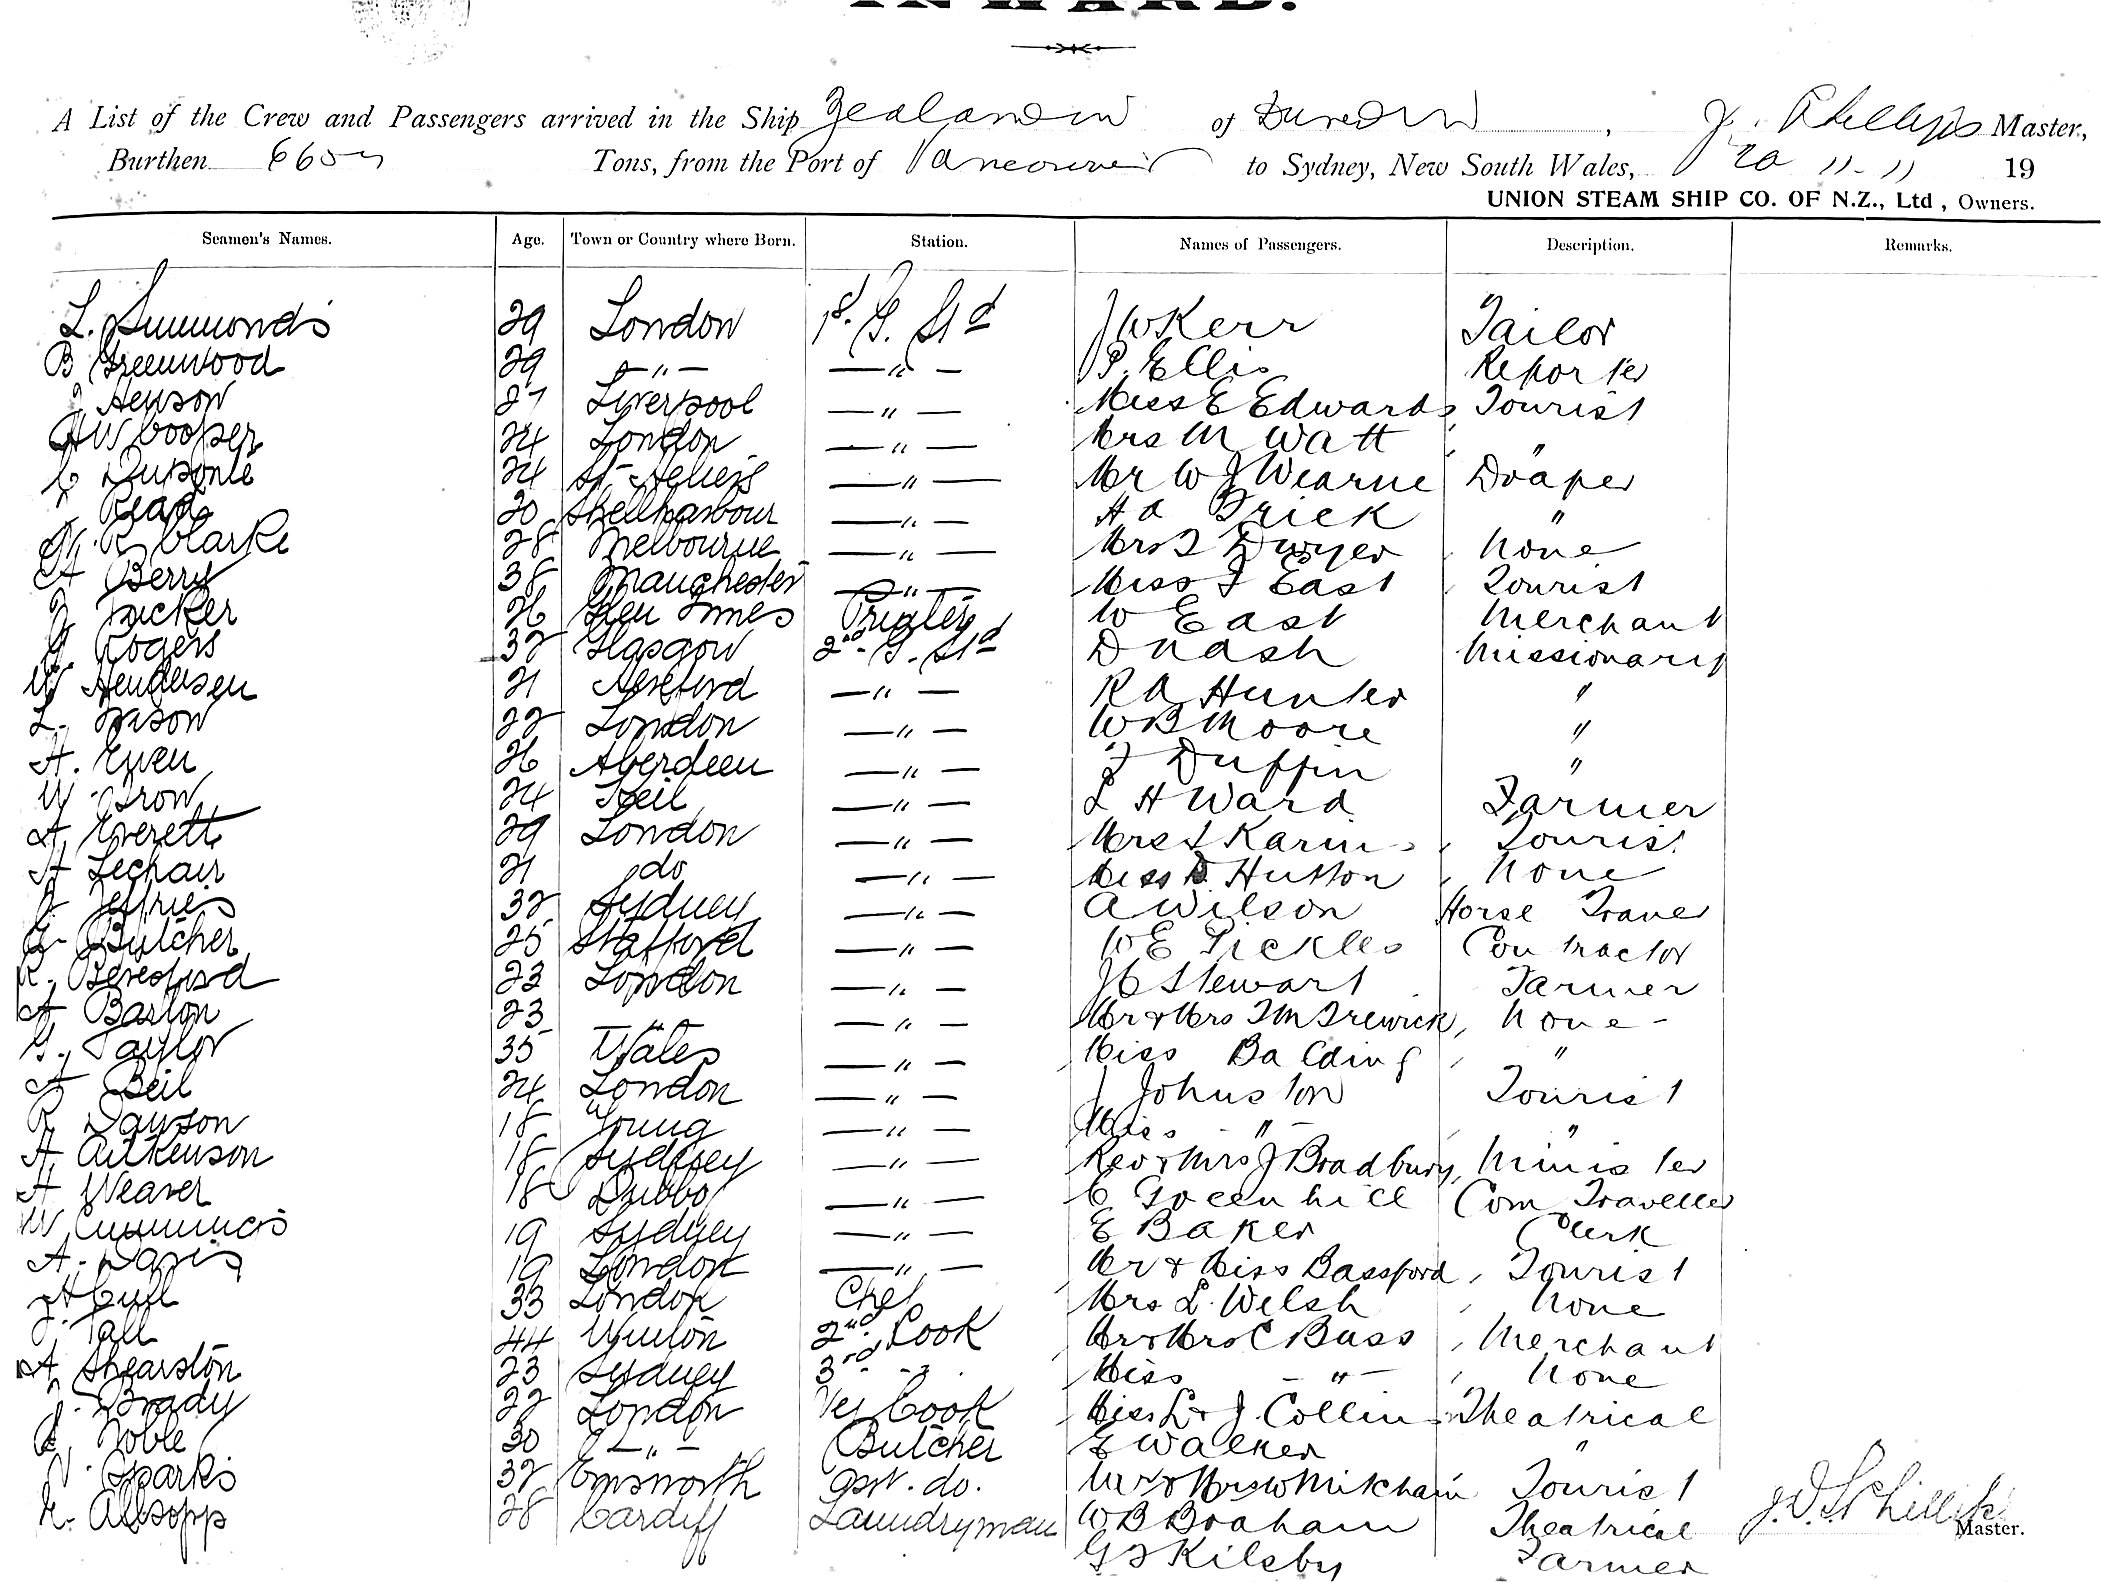 INWARD.
A List of the Crew and Passengers arrived in the Ship Zealandia of Dunedin, J. Phillips Master,
Burthen 6609 Tons, from the Port of Vancouver to Sydney, New South Wales, 20 11 - 11 19
UNION STEAM SHIP CO. OF N.Z., Ltd, Owners.
Seamen's Names. Age. Town or Country where Born. Station. Names of Passengers. Description. Remarks.
L. Simmonds 29 London 1st. G. Std J W Kerr Tailor
B Greenwood 29 — " — — " — P. Ellis Reporter
Henson 27 Liverpool — " — Miss E Edwards, Tourist
H W Cooper 24 London — " — Mrs M Watt "
C 24 St — " — Mr W J Wearne Draper
Read 20 Shellharbour — " — H A Brick "
R Clarke 28 Melbourne — " — Mrs Dwyer None
A Berry 38 Manchester — " — Miss F East Tourist
Tucker 26 Glen Innes W East Merchant
Rogers 32 Glasgow 2nd. G. Std D Nash Missionary
W Hendersen 21 Hereford — " — R A Hunter "
L. 22 London — " — W B Moore "
A. Ewen 26 Aberdeen — " — F Duffin "
W. Iron 24 — " — L H Ward Farmer
A. Everett 29 London — " — Mrs Tourist
A Lechair 21 do — " — Miss D. Hutton None
Jeffries 32 Sydney — " — A Wilson Horse
G. Butcher 25 Stafford — " — W E Pickles Contractor
R. Beresford 23 London — " — J C Stewart Farmer
A Barton 23 " — " — Mr & Mrs T M Trewick, None -
G. Taylor 35 Wales — " — Miss Balding "
A Beil 24 London — " — J Johnston Tourist
R Dawson 18 Young — " — Miss - " - "
A Aitkenson 18 Sydney — " — Rev & Mrs J Bradbury, Minister
A Weaver 18 Dubbo — " — C Greenhill Com Traveller
W Cummings 19 Sydney — " — E Baker Clerk
A. Davis 19 London — " — Mr & Miss Bassford, Tourist
33 London Chef Mrs L. Welsh None
J. Tall 44 2nd. Cook Mr & Mrs C Bass, Merchant
A Shearston 23 Sydney 3rd. Miss — " — None
J. Brady 22 London Veg Cook Miss L & J. Collin Theatrical
Noble 30 — " — Butcher E Walker "
Sparks 32 Emsworth asst. do. Mr & Mrs W Mitcham Tourist
Allsopp 28 Cardiff Laundryman W B Braham Theatrical
G F Kilsby Farmer
J. D. S. Phillips
Master.